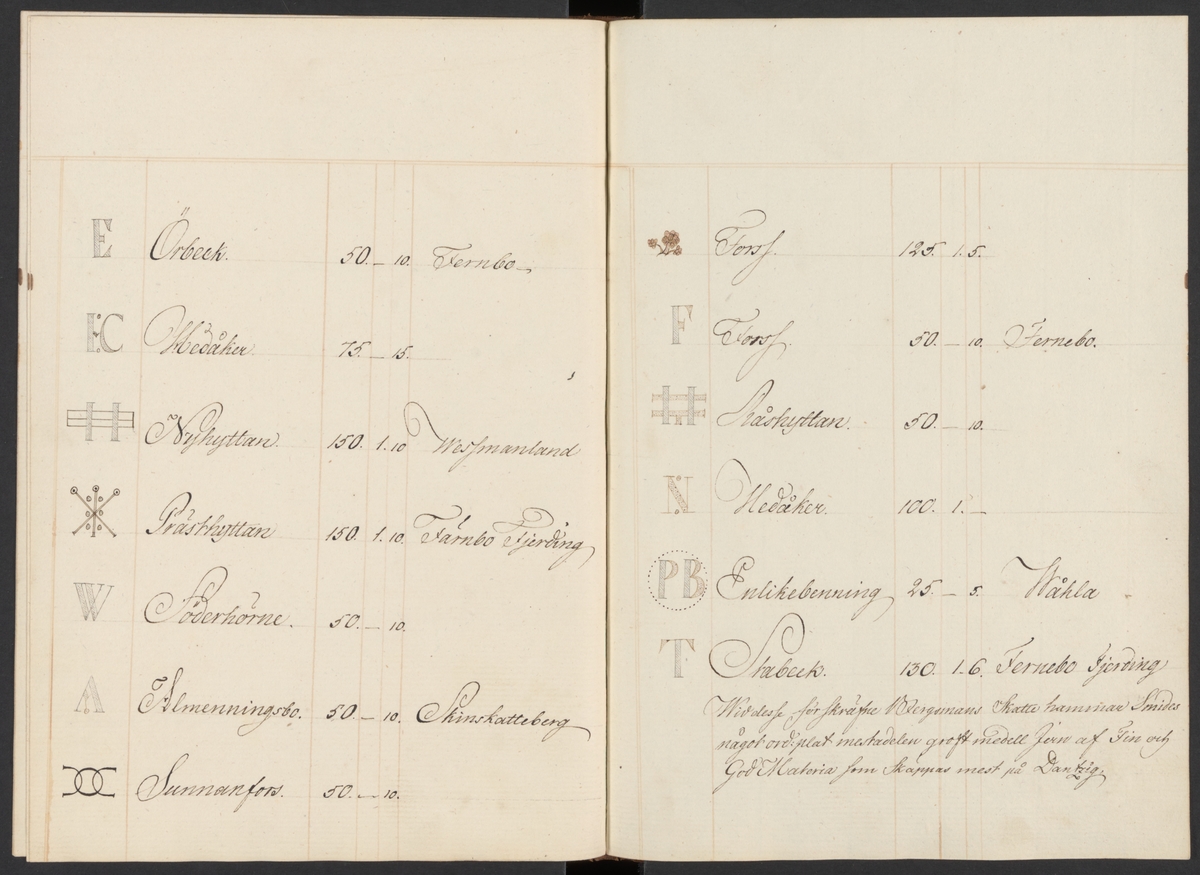 E Örbeck. 50. — 10. Fernbo
EC Medåker. 75. — 15.
Nyhyttan. 150. 1. 10 Wessmanland
Prästhyttan 150. 1. 10. Färnbo Fjerding
W Söderhörne. 50. — 10.
A Allmenningsbo. 50. — 10. Skinskatteberg
Sunnanfors. 50. — 10.
Forss. 125. 1. 5.
F Forss. 50. — 10. Fernebo.
Råshyttan. 50. — 10.
N Medåker. 100. 1. —
PB Enlikebenning 25. — 5. Wåhla
T Stabeck. 130. 1. 6. Fernebo Fjerding
Wid desse förskräfne Bergsmans Skatte hammrar Smides
något ord: plat mestadelen groft medell Jern af Fin och
God Materia som Skäppas mest på Dantzig.